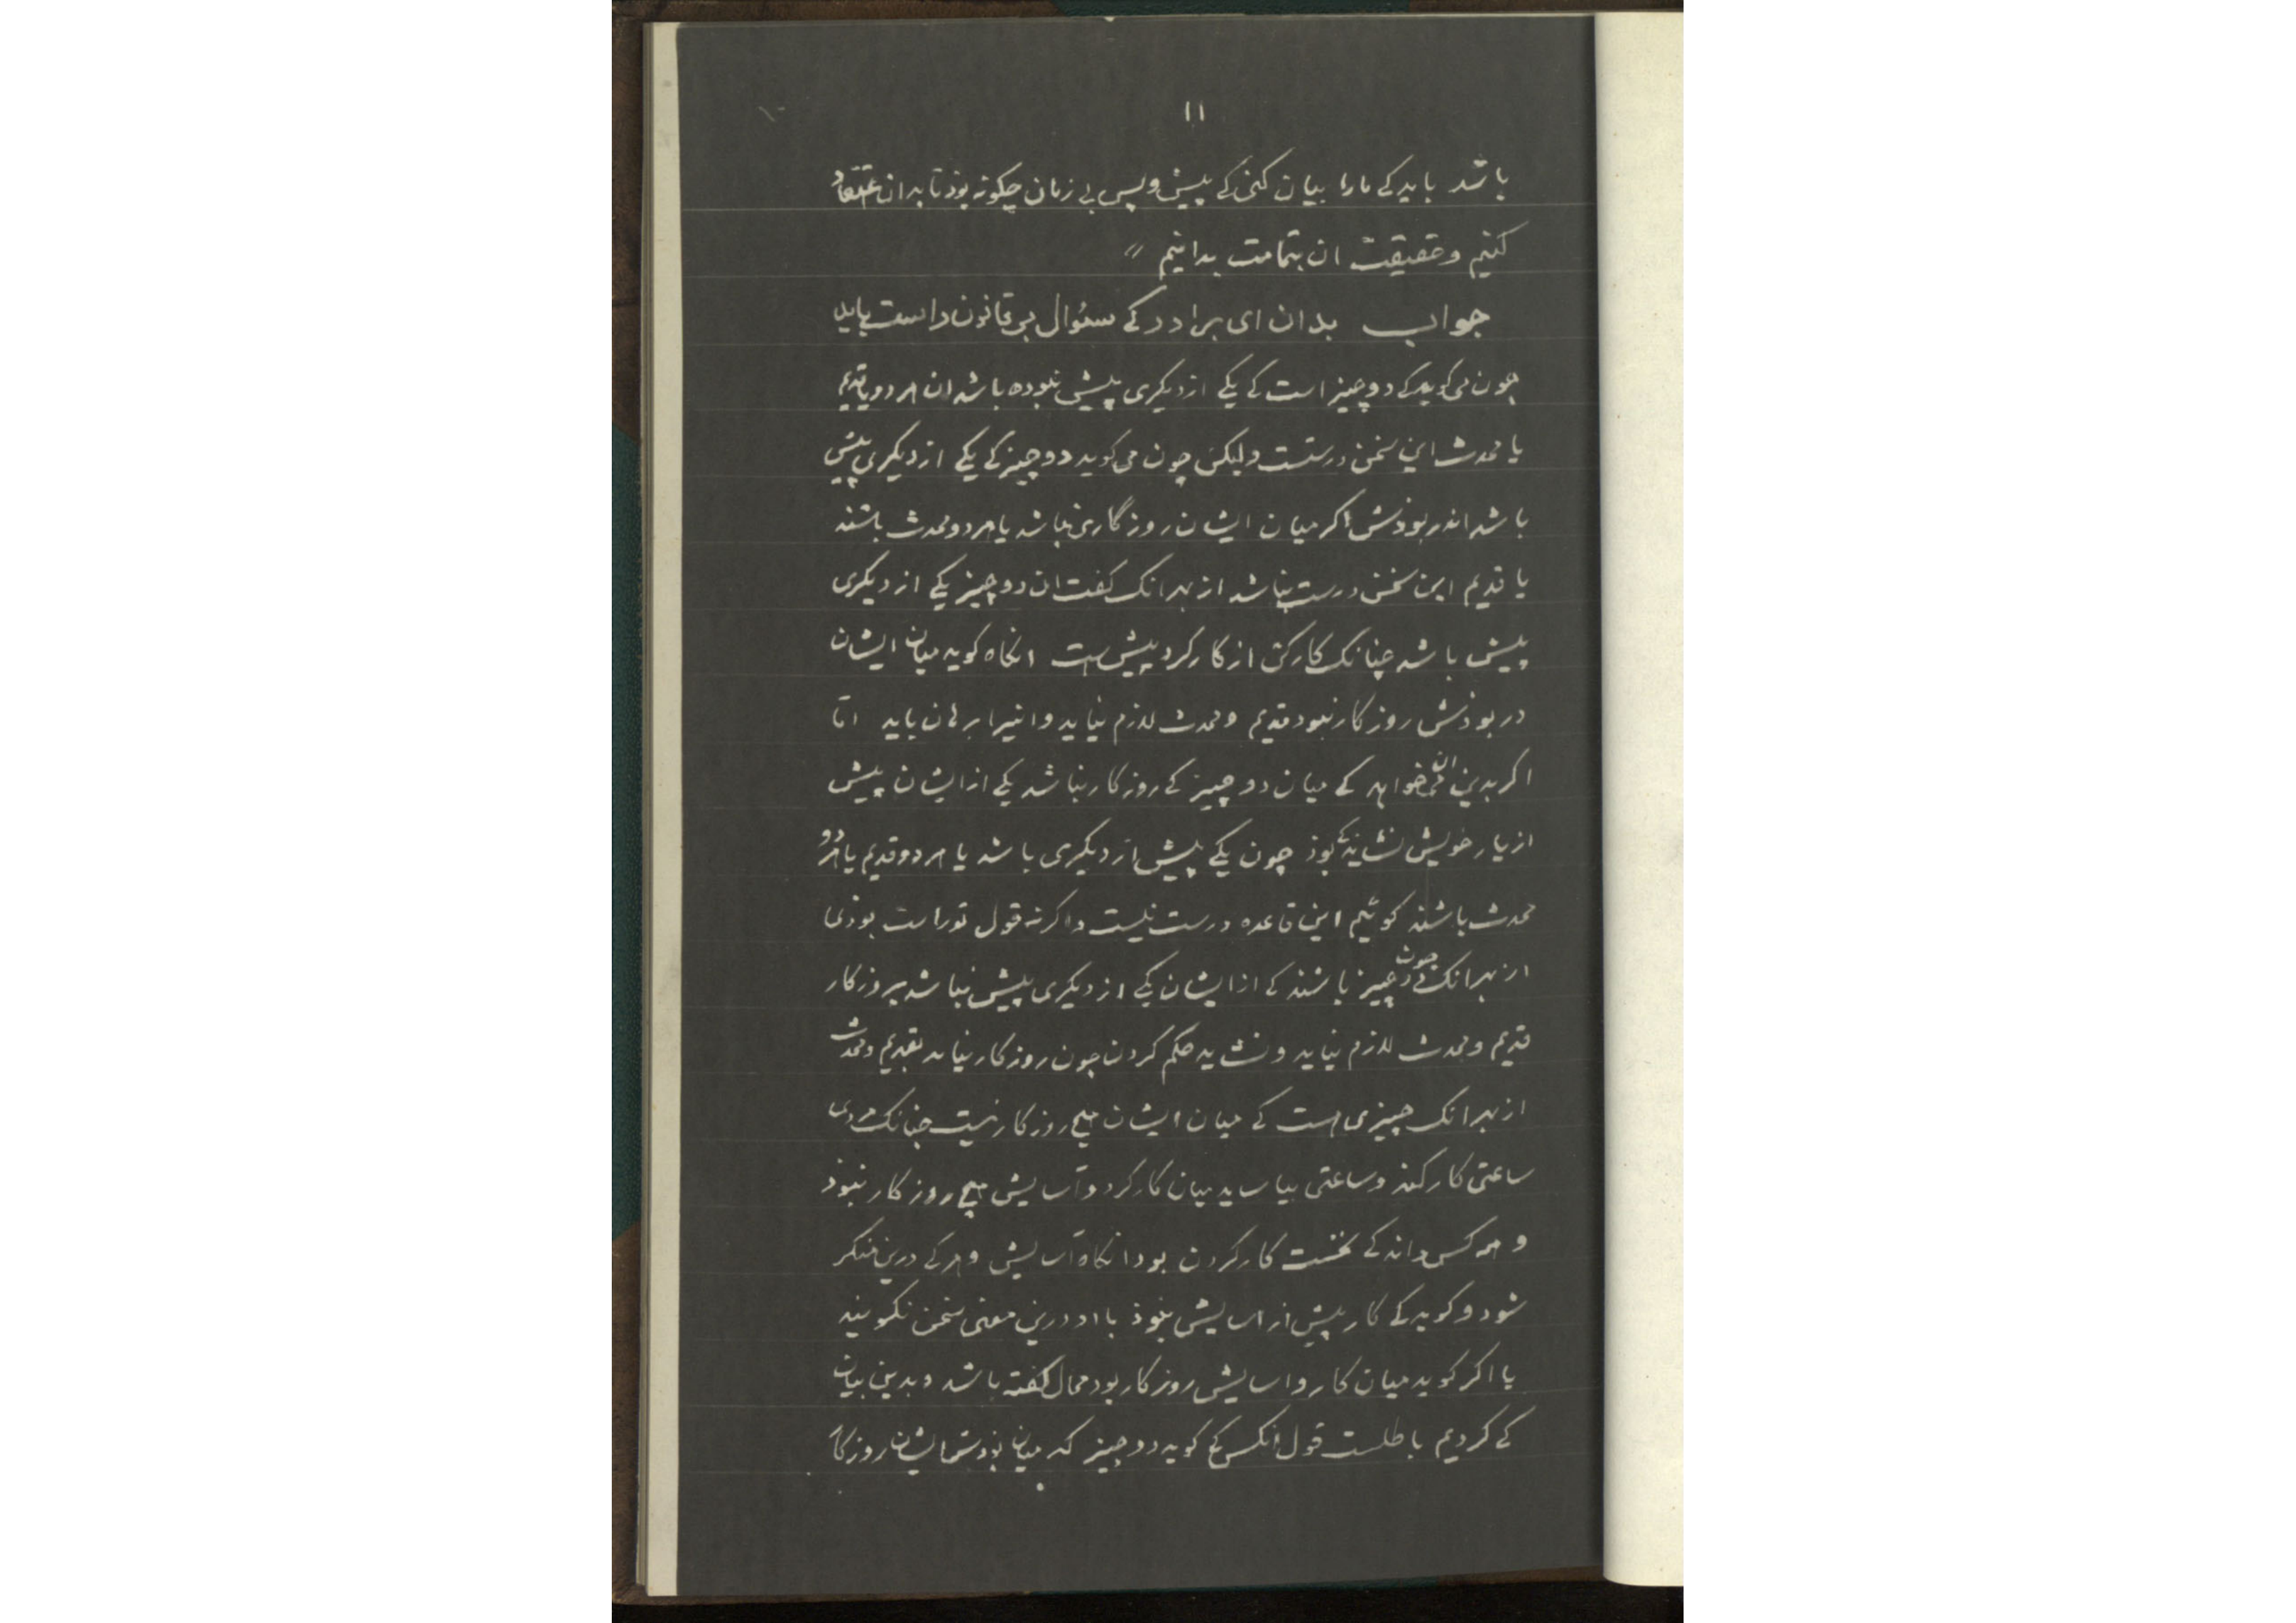 ۱۱
باشد باید کی مارا بیان کنی کی پیش و پس بی زمان چکونه بوذ تا بدان اعتقاد
کنیم و حقیقت ان بتمامت بدانیم //
جواب بدان ای برادر کی سئوال بی قانون راست باید
چون می کوید کی دو چیز است کی یکی از دیکری پیش نبوده باشد ان هر دو یا قدیم
یا محدث این سخن درستست ولیکن چون می کوید دو چیز کی یکی از دیکری پیش
باشد اندر بوذش اکر میان ایشان روزگاری نباشد یا هر دو محدث باشند
یا قدیم این سخن درست نباشد از بهر انک کفت ان دو چیز یکی از دیکری
پیش باشد چنانک کارکن از کارکرد پیش است انکاه کوید میان ایشان
در بوذش روزکار نبود قدیم و محدث لازم نیاید وانیرا برهان باید اما
اکر بدین ان می خواهد کی میان دو چیز کی روزکار نباشد یکی از ایشان پیش
از یار خویش نشاید کی بوذ چون یکی پیش از دیکری باشد یا هر دو قدیم یا هر دو
محدث باشند کوئیم این قاعده درست نیست واکرنه قول تو راست بوذی
از بهر انک چون دو چیز باشند کی از ایشان یکی از دیکری پیش نباشد بروزکار
قدیم و محدث لازم نیاید و نشاید حکم کردن چون روزکار نیاید بقدیم و محدث
از بهر انک چیزی هست کی میان ایشان هیچ روزکار نیست چنانک مردی
ساعتی کار کند و ساعتی بیاساید میان کارکرد و آسایش هیچ روزکار نبوذ
و همه کس داند کی نخست کار کردن بود انکاه آسایش و هر کی درین منکر
شود و کوید کی کار پیش از اسایش نبوذ با او درین معنی سخن نکویند
یا اکر کوید میان کار و اسایش روزکار بود محال کفته باشد و بدین بیان
کی کردیم باطلست قول انکس کی کوید دو چیز که میان بوذش ایشان روزکار